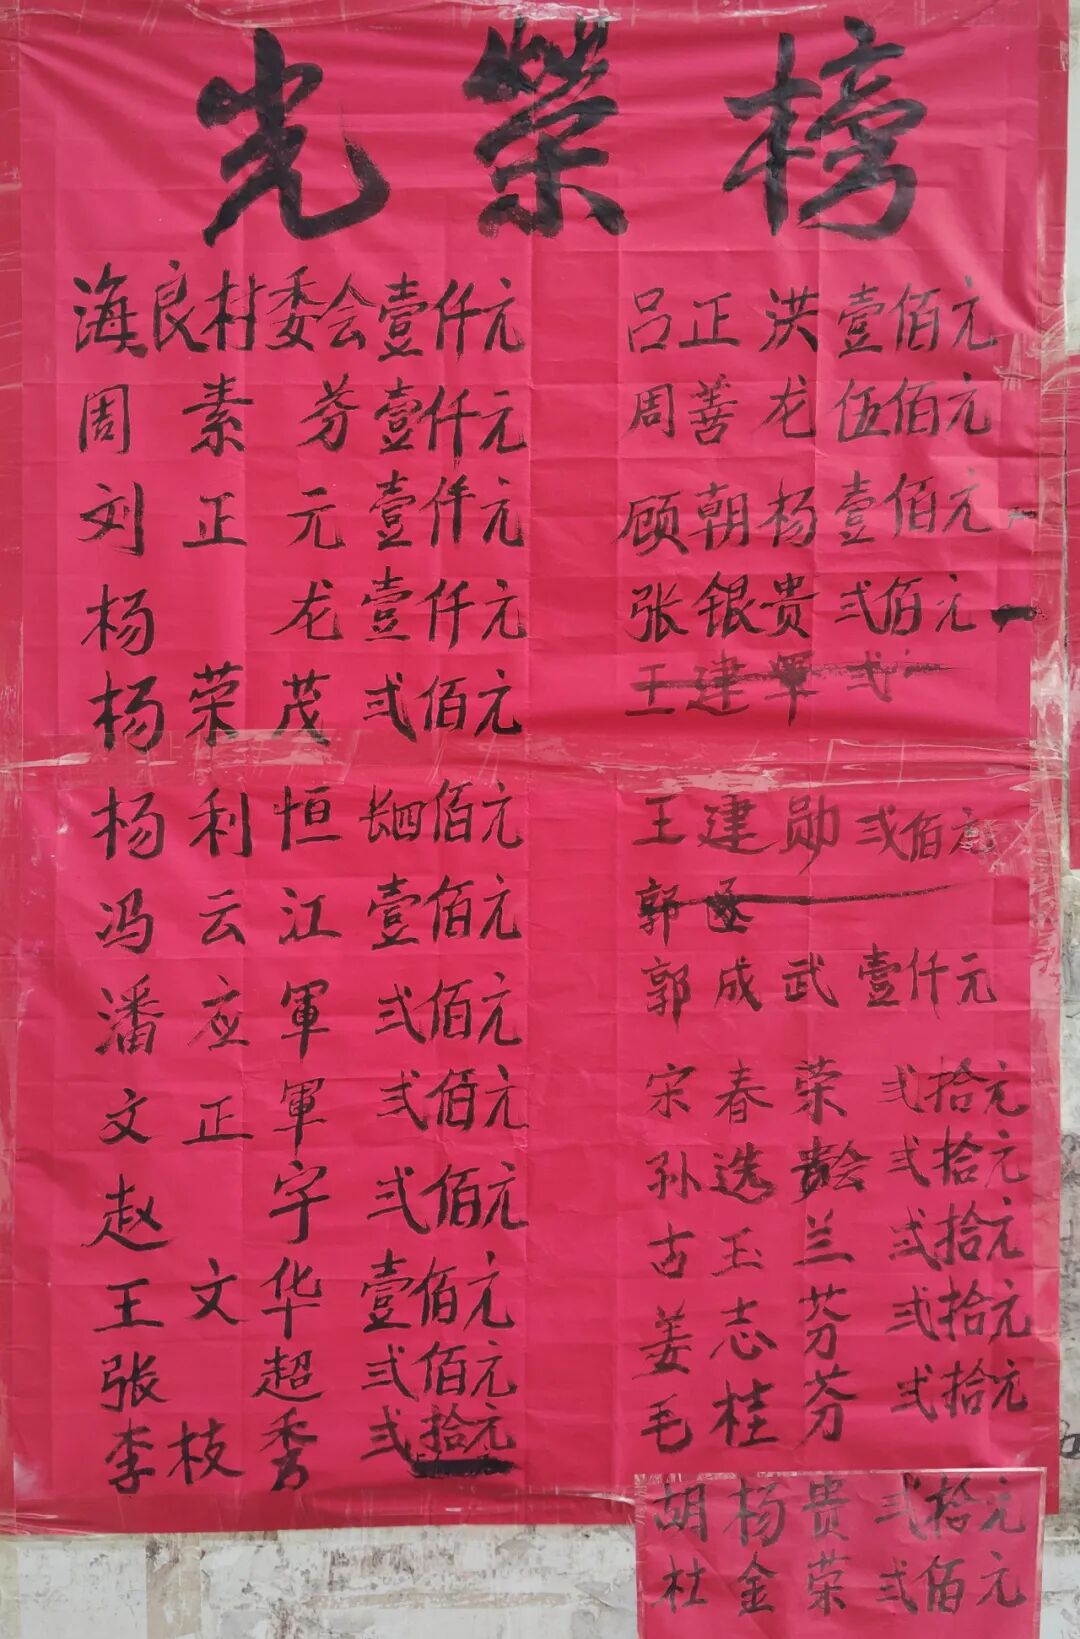 光榮榜
海良村委会壹仟元
周素芬壹仟元
刘正元壹仟元
杨龙壹仟元
杨荣茂弍佰元
杨利恒肆佰元
冯云江壹佰元
潘应軍弍佰元
文正軍弍佰元
赵宇弍佰元
王文华壹佰元
张超弍佰元
李枝秀弍拾元
吕正洪壹佰元
周善龙伍佰元
顾朝杨壹佰元
张银贵弍佰元
王建軍弍
王建勋弍佰元
郭
郭成武壹仟元
宋春荣弍拾元
孙选会弍拾元
古玉兰弍拾元
姜志芬弍拾元
毛桂芬弍拾元
胡杨贵弍拾元
杜金荣弍佰元